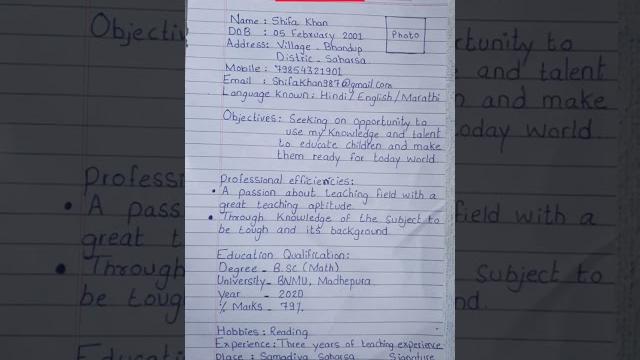 Name : Shifa Khan
DOB : 05 February 2001
Address: Village - Bhandup
Distric - Saharsa
Photo
Mobile : 79854321901
Email : ShifaKhan987@gmail.com
Language Known: Hindi / English / Marathi
Objectives: Seeking on opportunity to
use my Knowledge and talent
to educate children and make
them ready for today world.
Professional efficiencies:
• A passion about teaching field with a
great teaching aptitude.
• Through Knowledge of the subject to
be tough and its background.
Education Qualification:
Degree - B.SC (Math)
University - BNMU, Madhepura
Year - 2020
% Marks - 79%
Hobbies : Reading
Experience: Three years of teaching experience
Place : Samadiya Saharsa Signature